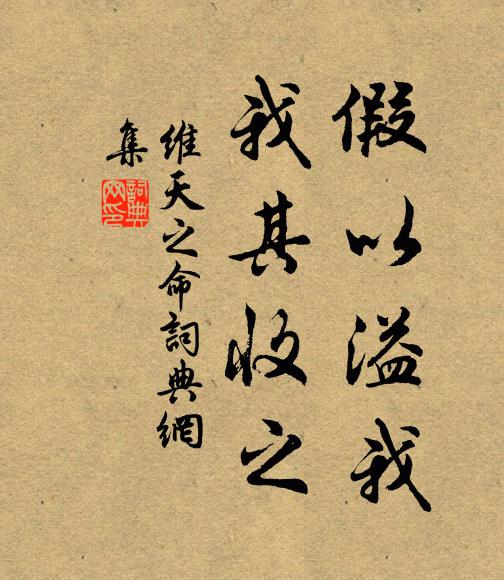 假以溢我
我其收之
維天之命詞典網
集
詞典网印